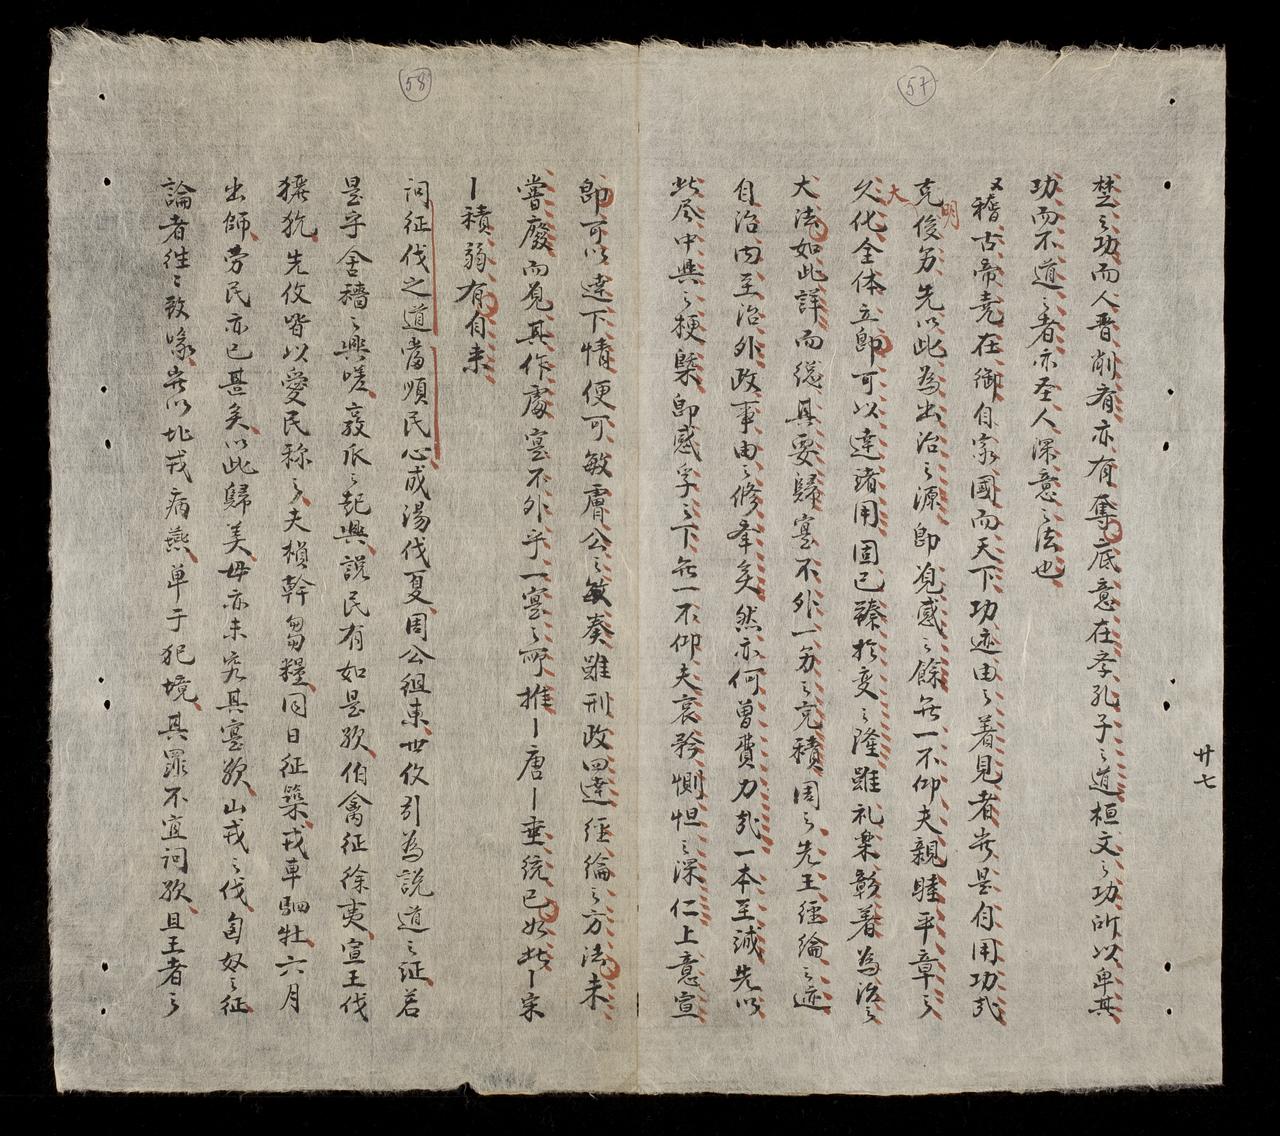 57
廿七
楚之功而人晋削有亦有奪底意在孝孔子之道桓文之功所以卑其
功而不道之者亦圣人深意之法也
又稽古帝尭在御自家國而天下功迹由之着見者岂是自用功哉
克明俊另先以此為出治之源即見感之餘旡一不仰夫親睦平章之
大
久化全体立即可以達诸用固已臻於变之隆雖礼楽彰著為治之
大法如此詳而緫其要歸寔不外一另之克積周之先王經綸之迹
自治内至治外政事由之修举矣然亦何曽費力哉一本至誠先以
此尽中興之梗槩即感孚之下旡一不仰夫哀矜惻怛之深仁上意宣
58
即可以達下情便可敏膚公之敏奏雖刑政四達經綸之方法未
嘗廢而見其作處寔不外乎一寔之所推丨唐丨垂統已如此丨宋
丨積弱有自来
问征伐之道當順民心成湯伐夏周公徂東世攸引為說道之征若
是乎舍穡之興嗟蓘瓜之起興說民有如是欤伯禽征徐夷宣王伐
玁狁先攸皆以愛民称之夫楨幹芻糧同日征築戎車駟牡六月
出師劳民亦已甚矣以此歸美毋亦未究其寔欤山戎之伐匈奴之征
論者徃之致喙岂以北戎病燕单于犯境其罪不宜问欤且王者之